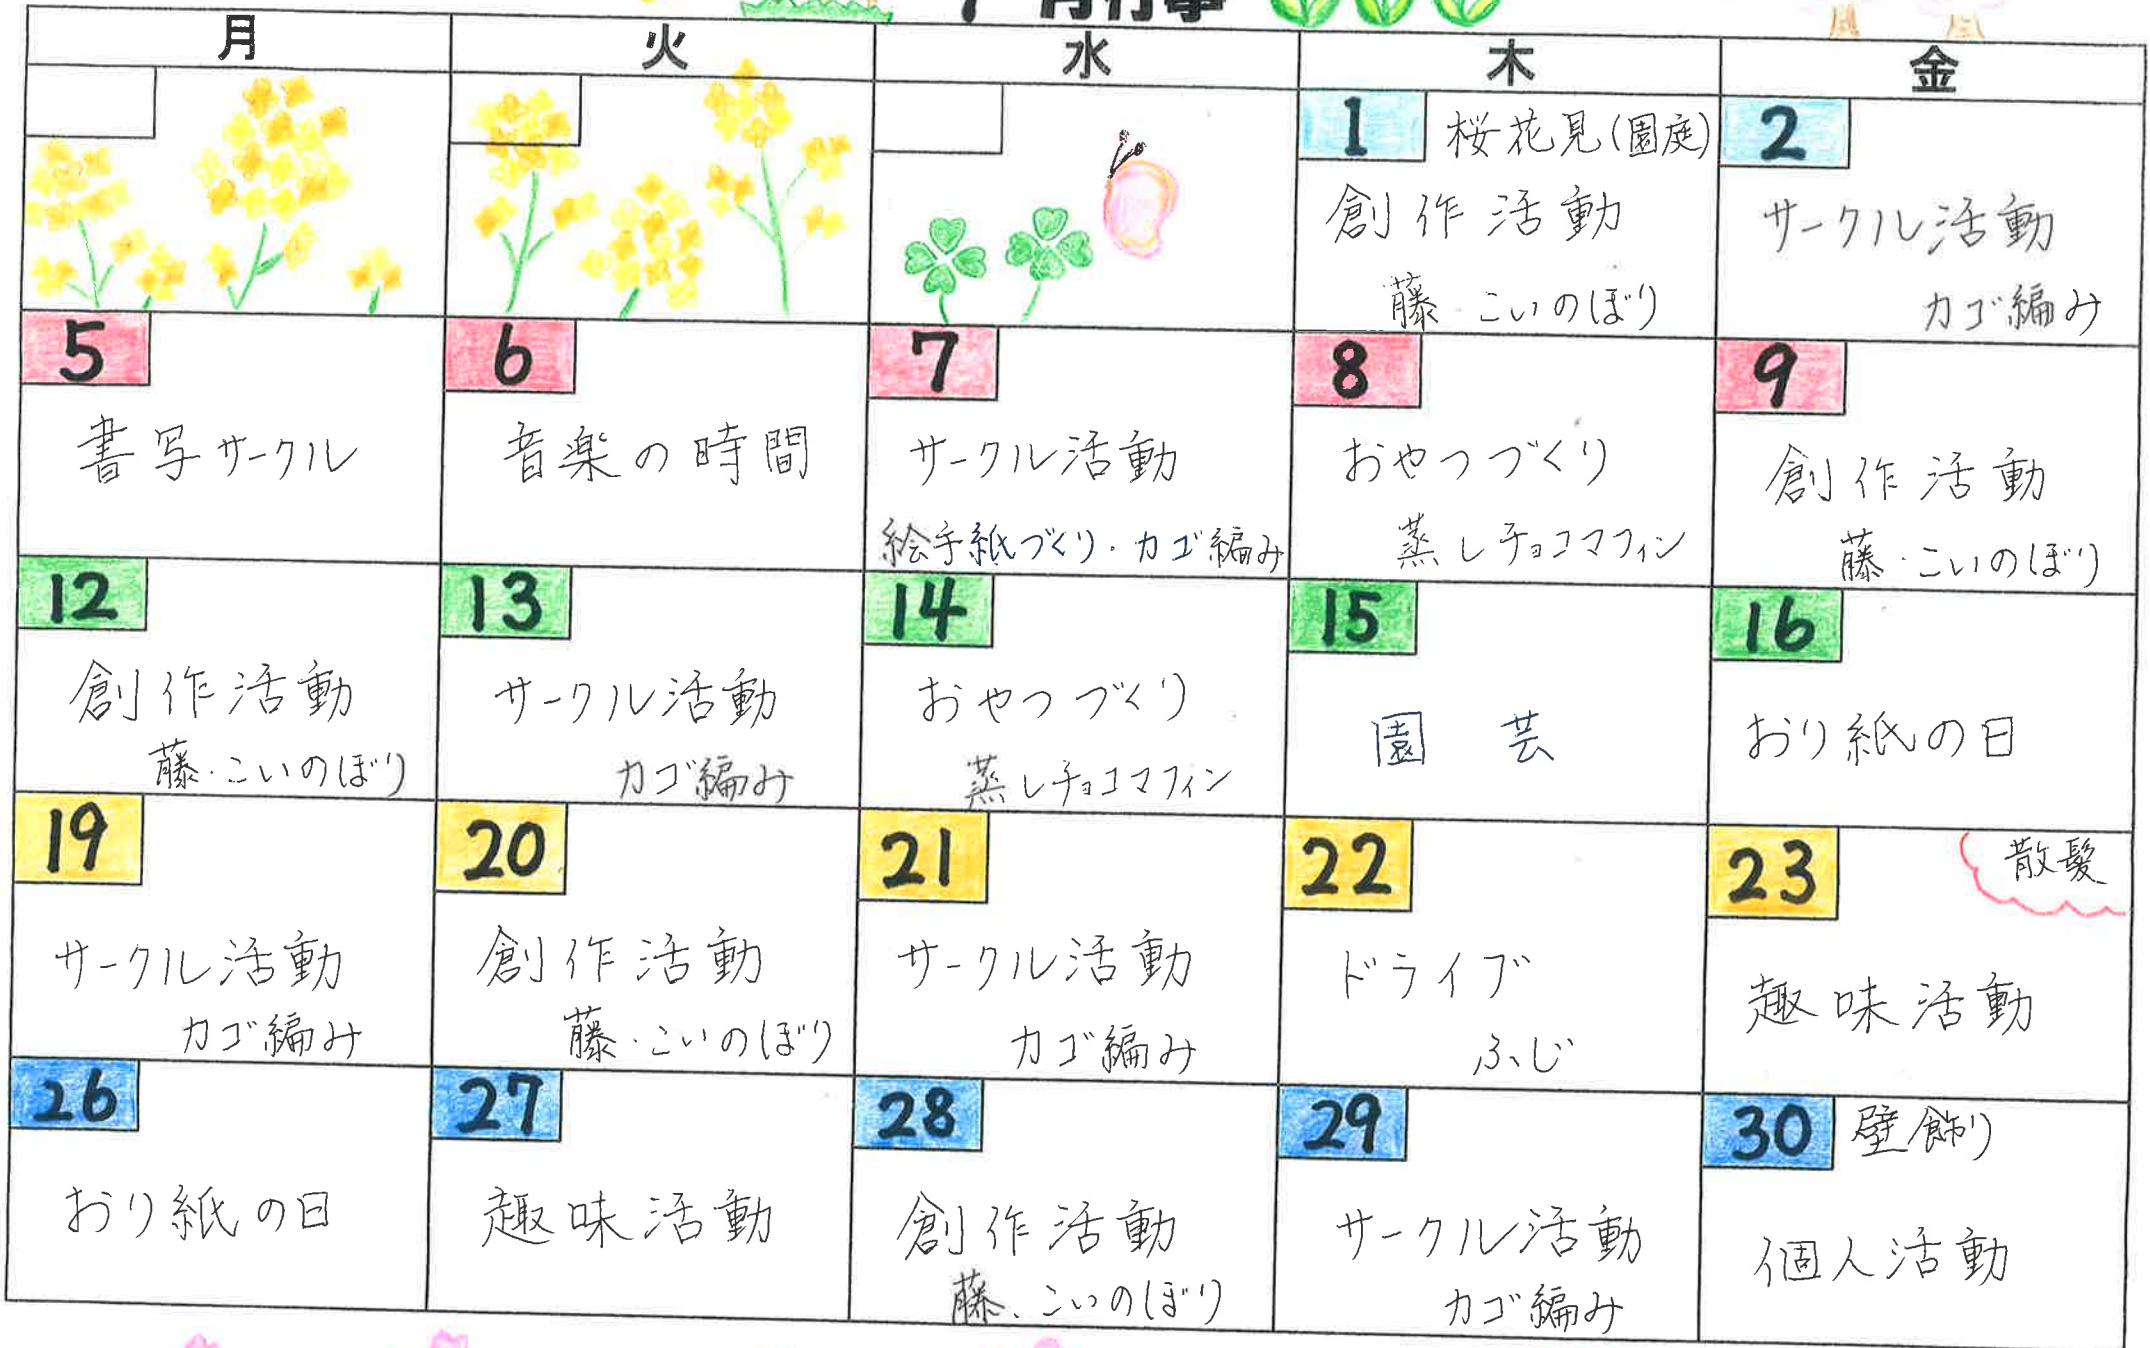 月行事
月 火 水 木 金
1 桜花見(園庭)
創作活動
藤・こいのぼり
2
サークル活動
カゴ編み
5
書写サークル
6
音楽の時間
7
サークル活動
絵手紙づくり・カゴ編み
8
おやつづくり
蒸しチョコマフィン
9
創作活動
藤・こいのぼり
12
創作活動
藤・こいのぼり
13
サークル活動
カゴ編み
14
おやつづくり
蒸しチョコマフィン
15
園芸
16
おり紙の日
19
サークル活動
カゴ編み
20
創作活動
藤・こいのぼり
21
サークル活動
カゴ編み
22
ドライブ
ふじ
23 散髪
趣味活動
26
おり紙の日
27
趣味活動
28
創作活動
藤、こいのぼり
29
サークル活動
カゴ編み
30 壁飾り
個人活動